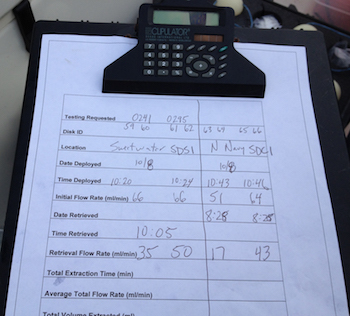 CLIPULATOR
Testing Requested 0241 0245
Disk ID 59 60 61 62 63 64 65 66
Location Sweetwater SDS1 N Navy SDC1
Date Deployed 10/8 10/8
Time Deployed 10:20 10:24 10:43 10:46
Initial Flow Rate (ml/min) 66 66 51 64
Date Retrieved 8:28 8:28
Time Retrieved 10:05
Retrieval Flow Rate (ml/min) 35 50 17 43
Total Extraction Time (min)
Average Total Flow Rate (ml/min)
Total Volume Extracted (ml)